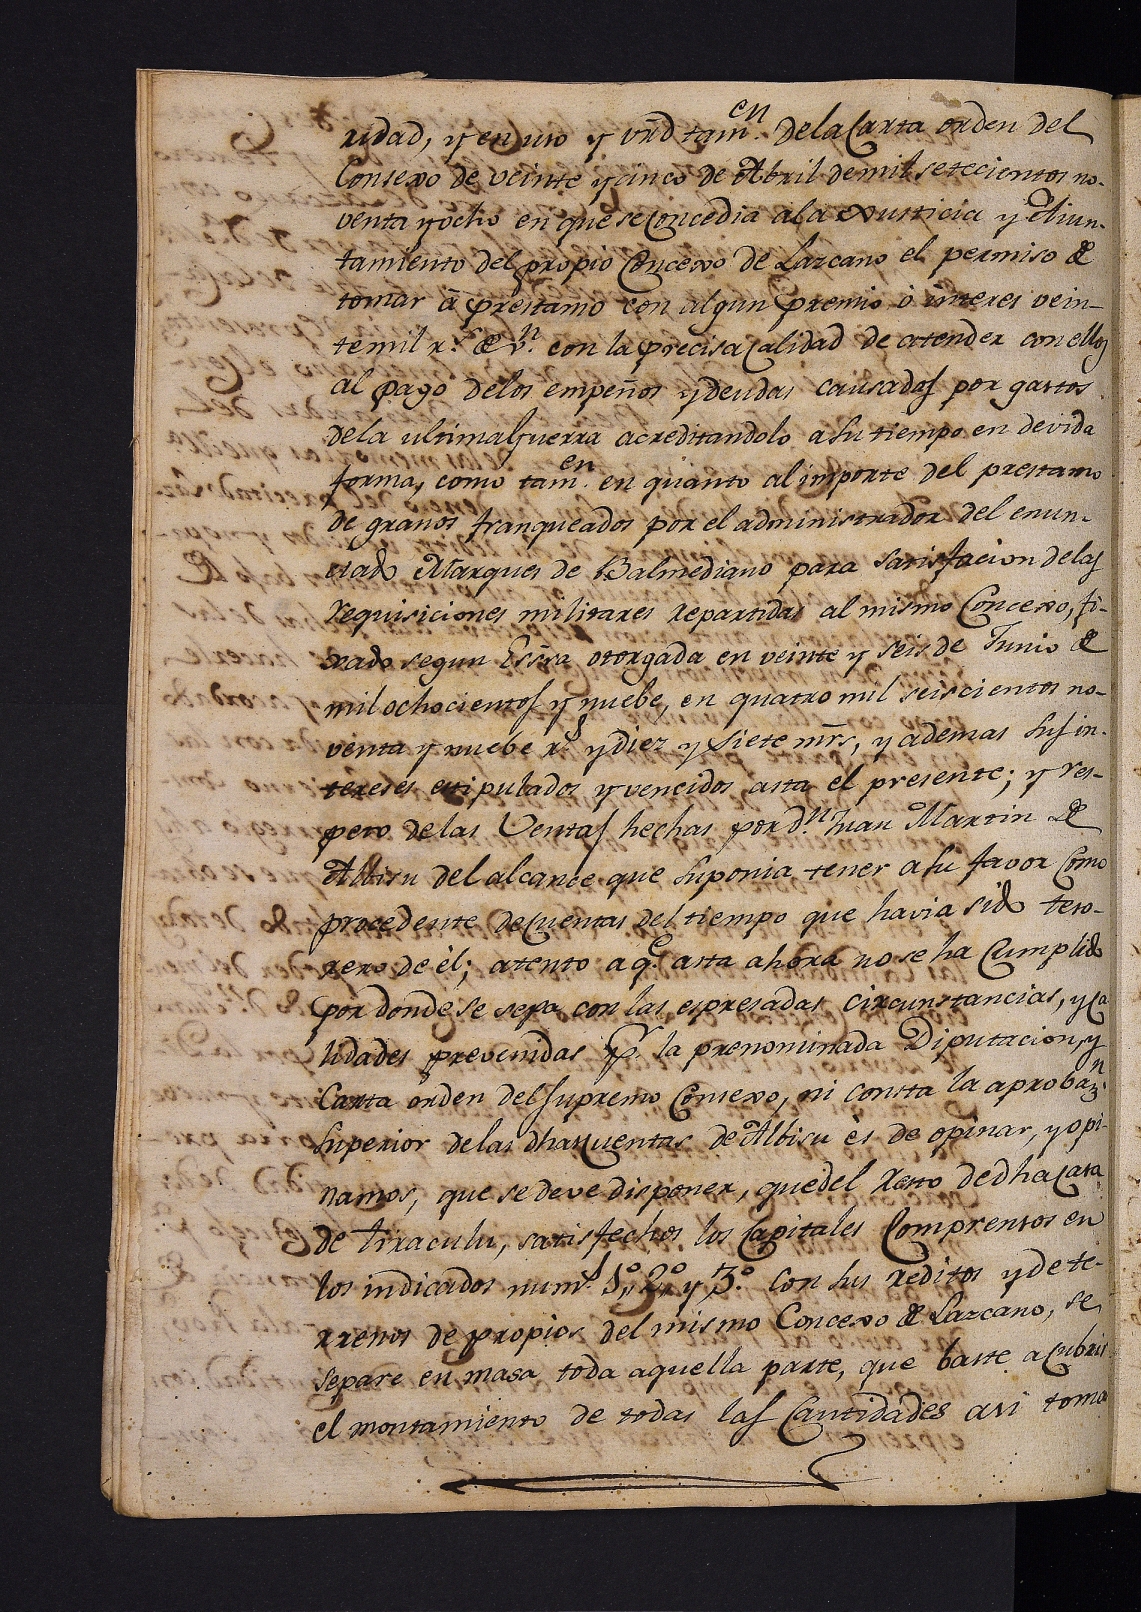 ridad, y en uso y vrd tam.en de la Carta orden del
Consexo de veinte y cinco de Abril de mil setecientos no-
venta y ocho en que se concedia a la Justicia y Aiun-
tamiento del propio Concexo de Lazcano el permiso de
tomar à prestamo con algun premio ò interes vein-
te mil r.s de v.n con la precisa calidad de atender con ellos
al pago de los empeños y deudas causadas por gastos
de la ultima Guerra acreditandolo a su tiempo en devida
forma, como tam.en en quanto al importe del prestamo
de granos franqueados por el administrador del enun-
ciado Marques de Balmediano para satisfacion de las
requisiciones militares repartidas al mismo Concexo, fi-
xado segun Essra otorgada en veinte y seis de Junio de
mil ochocientos y nuebe, en quatro mil seiscientos no-
venta y nuebe r.s y diez y siete mrs, y ademas sus in-
tereses estipulados y vencidos asta el presente; y res-
peto de las Ventas hechas por d.n Juan Martin de
Albisu del alcance que suponia tener a su favor como
procedente de cuentas del tiempo que havia sido teso-
rero de èl; atento a q.e asta ahora no se ha cumplido
por donde se sepa con las espresadas circunstancias, y ca
lidades prevenidas p.r la prenominada Diputacion, y
Carta orden del supremo Consexo, ni consta la aprobaz.n
superior de las dhas cuentas de Albisu ès de opinar, y opi-
namos, que se deve disponer, que del resto de dha Casa
de Irraculu, satisfechos los capitales comprensos en
los indicados num.s 1.º 2.º y 3.º con sus reditos y de te-
rrenos de propios del mismo Concexo de Lazcano, se
separe en masa toda aquella parte, que baste a cubrir
el montamiento de todas las cantidades asi toma